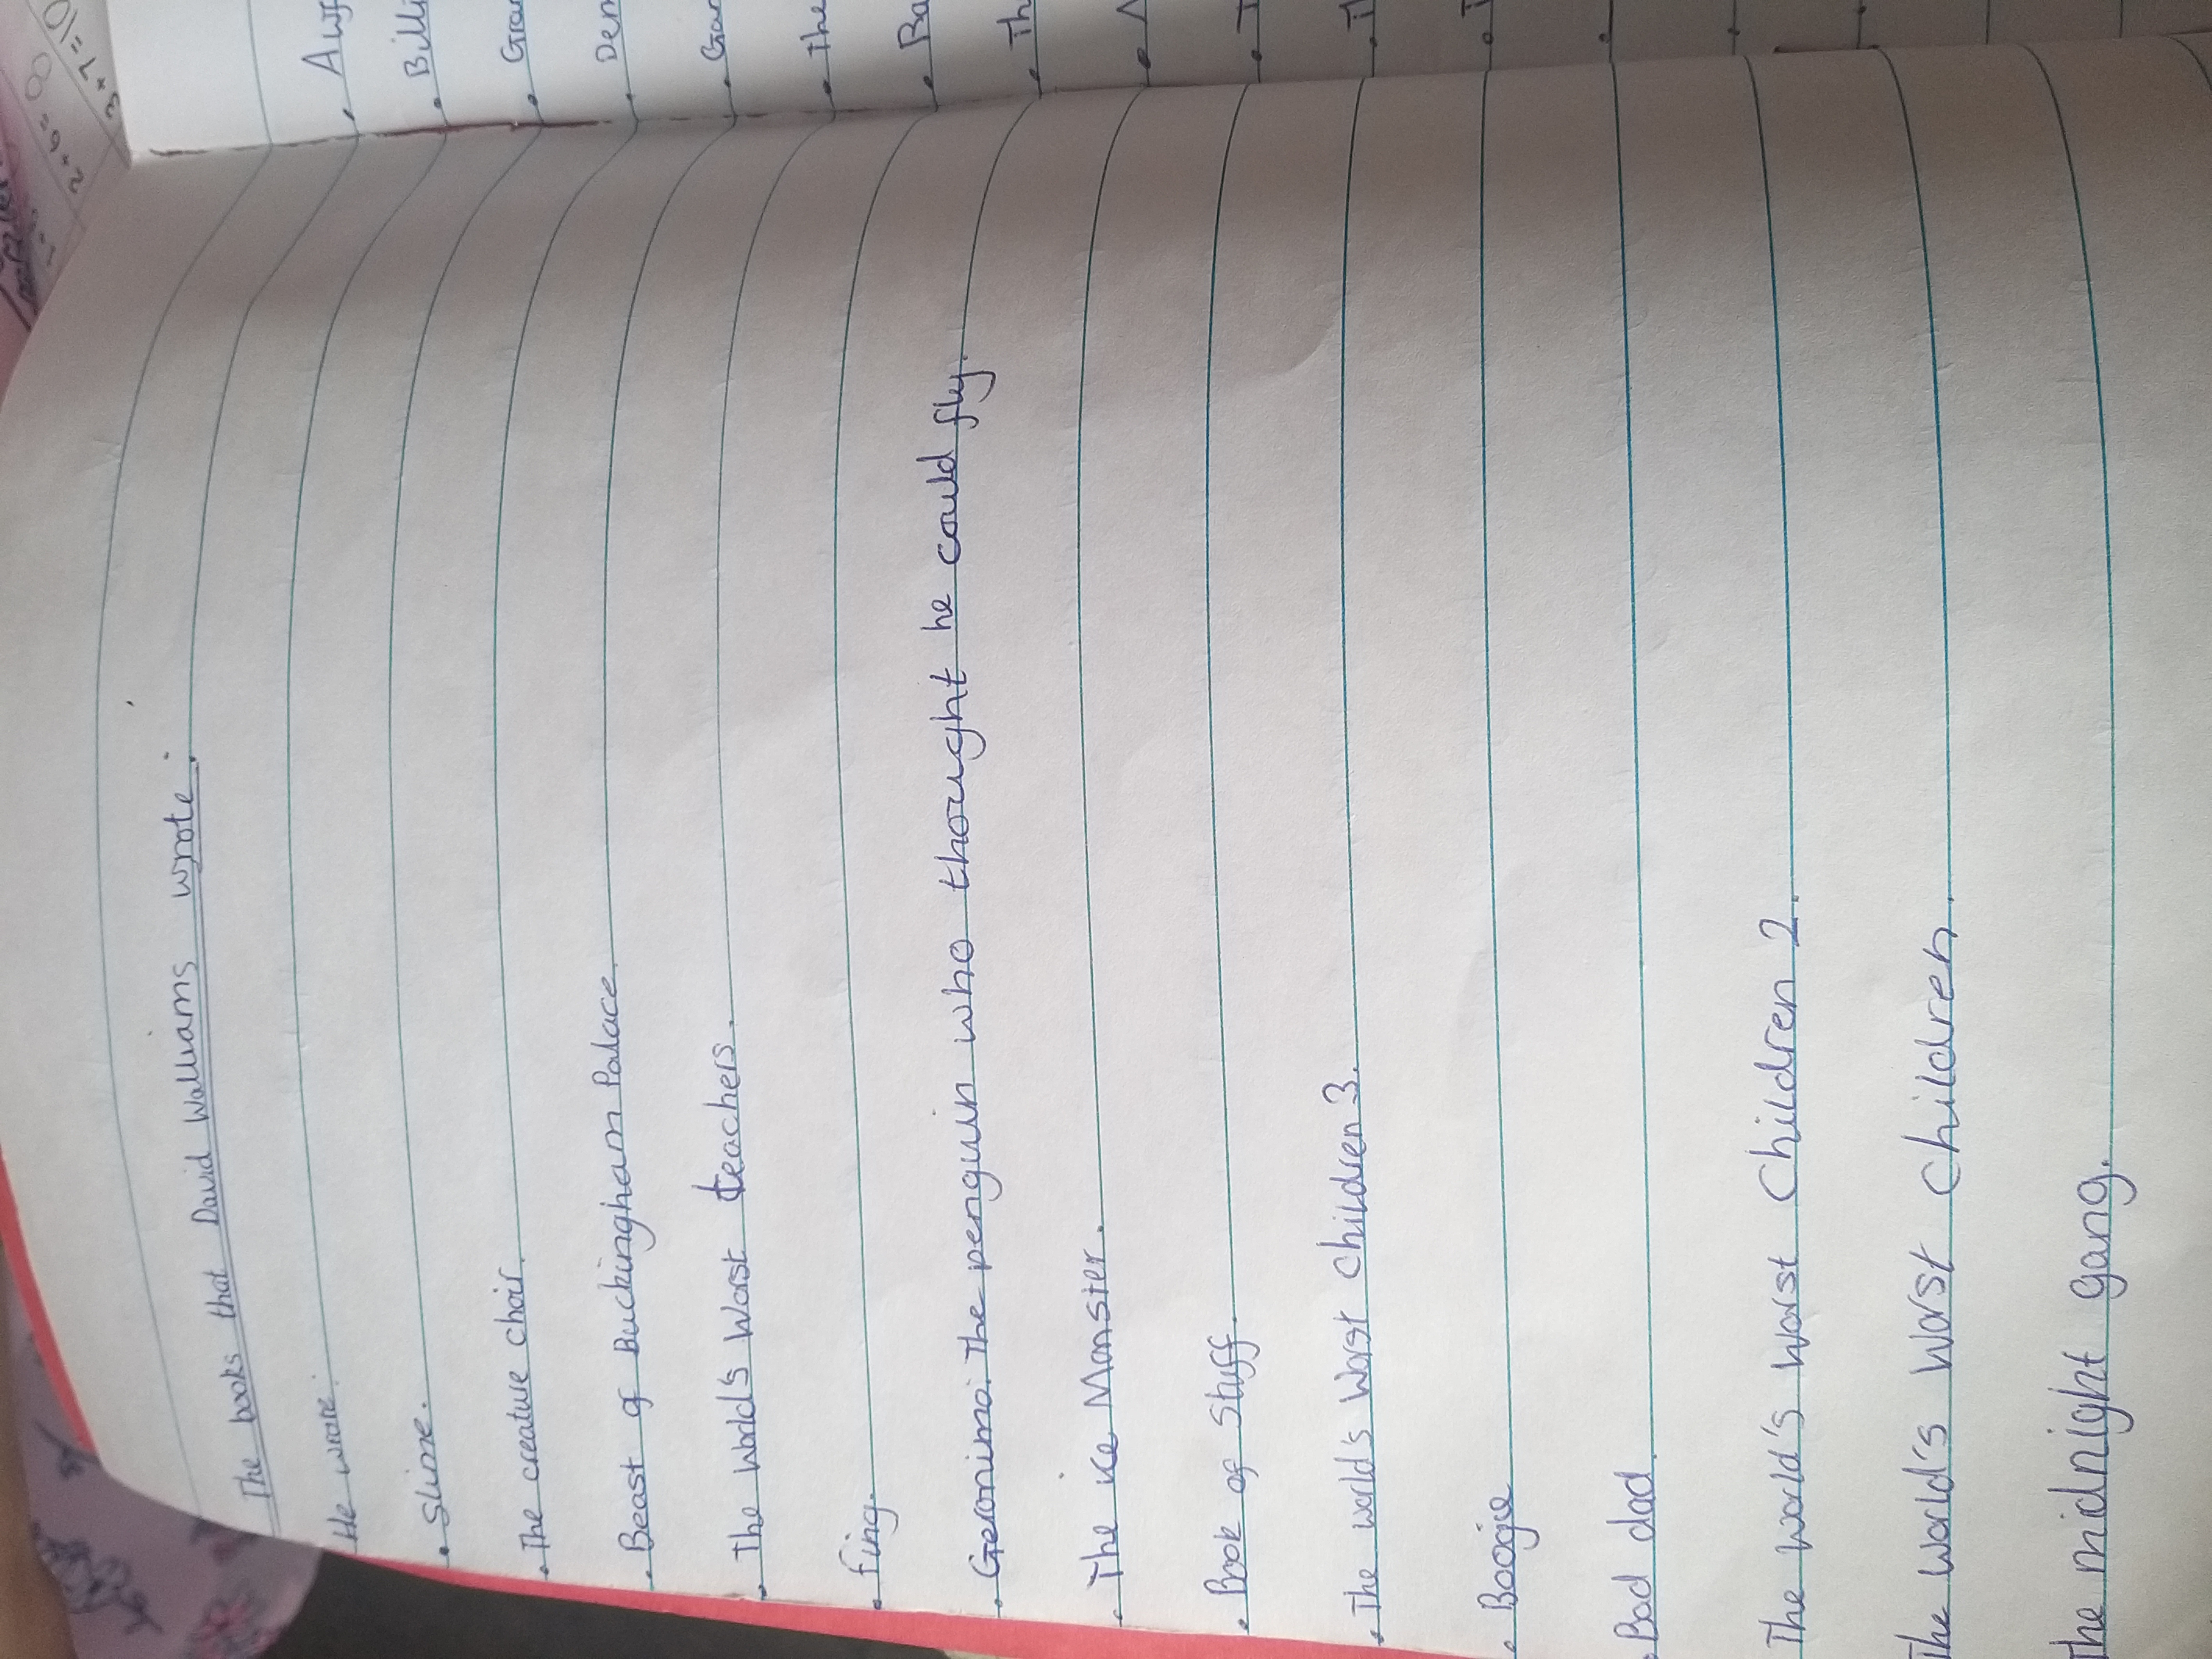 The books that David Walliams wrote:
He wrote:
• Slime.
• The creature choir.
• Beast of Buckingham Palace.
• The world's Worst teachers.
• Fing.
• Geronimo. The penguin who thought he could fly.
• The ice Monster.
• Book of Stuff.
• The world's Worst children 3.
• Boogie
• Bad dad.
The world's Worst Children 2.
The world's Worst Children.
The midnight gang.
• Billi
• Gran
• Dem
• Gan
• The
• Ba
• Th
3+7=10
2+6=8